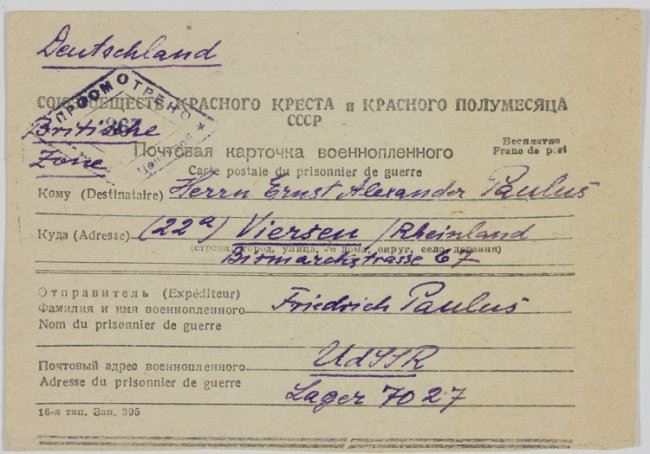 Deutschland
ПРОСМОТРЕНО
СОЮЗ ОБЩЕСТВ КРАСНОГО КРЕСТА и КРАСНОГО ПОЛУМЕСЯЦА
СССР
Britische
Zone
Почтовая карточка военнопленного
Бесплатно
Franc de port
Carte postale du prisonnier de guerre
Кому (Destinataire) Herrn Ernst Alexander Paulus
Куда (Adresse) (22a) Viersen /Rheinland
(страна, город, улица, № дома, округ, село, деревня)
Bismarckstrasse 67
Отправитель (Expéditeur)
Фамилия и имя военнопленного Friedrich Paulus
Nom du prisonnier de guerre
Почтовый адрес военнопленного UdSSR
Adresse du prisonnier de guerre
Lager 7027
16-я тип. Зак. 395